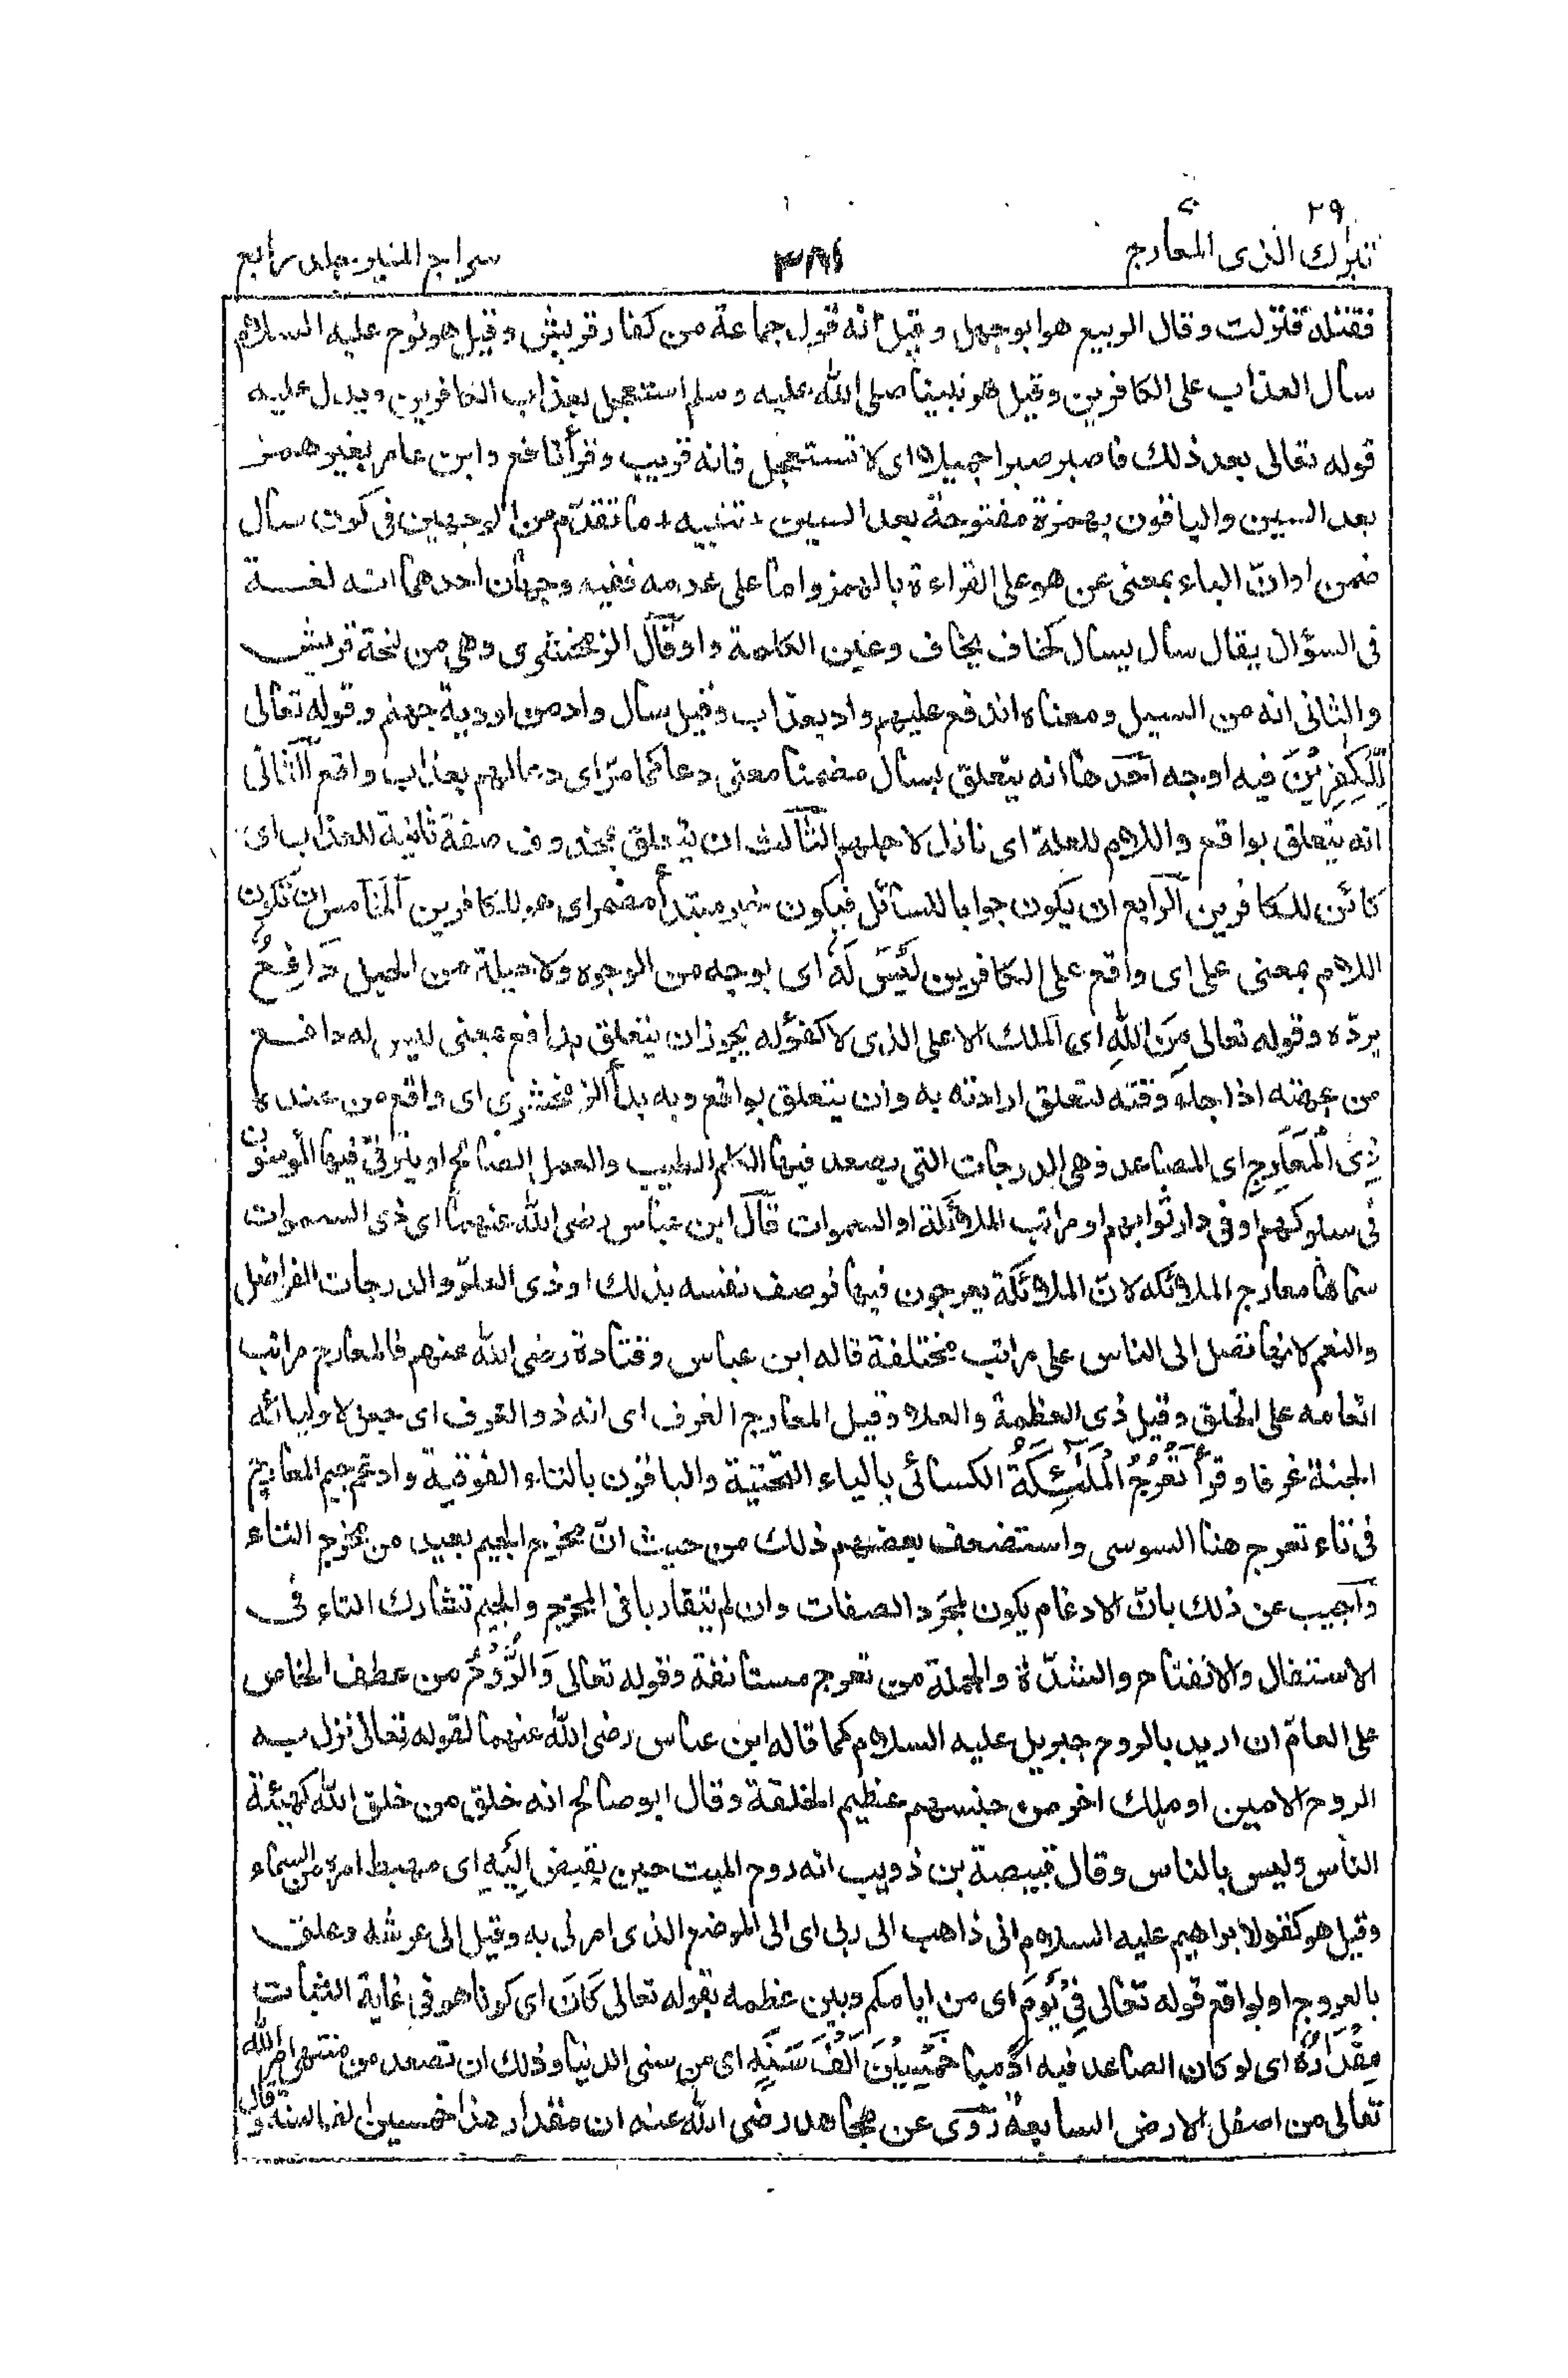 ٢٩
تبرك الذى المعارج
سراج المنير جلد رابع
فقتله فنزلت وقال الربيع هو ابو جهل وقيل انه قول جماعة من كفار قريش وقيل هو نوح عليه السلام
سأل العذاب على الكافرين وقيل هو نبينا صلى الله عليه وسلم استعجل بعذاب الكافرين ويدل عليه
قوله تعالى بعد ذلك فاصبر صبرا جميلا اى لا تستعجل فانه قريب وقرأ نافع وابن عامر بغير همز
بعد السين والباقون بهمزة مفتوحة بعد السين ۔ تنبيه ۔ ما تقدّم من الوجهين فى كون سأل
ضمن او انّ الباء بمعنى عن هو على القراءة بالهمز واما على عدمه ففيه وجهان احدهما انه لغة
فى السؤال يقال سال يسال كخاف يخاف وعين الكلمة واو قال الزمخشرى وهى من لغة قريش
والثانى انه من السيل ومعناه اندفع عليهم واد بعذاب وقيل سال واد من اودية جهنم وقوله تعالى
لِّلْكٰفِرِيْنَ فيه اوجه احدها انه يتعلق بسأل مضمنا معنى دعا كما مرّ اى دعا لهم بعذاب واقع الثانى
انه يتعلق بواقع واللام للعلة اى نازل لاجلهم الثالث ان يتعلق بمحذوف صفة ثانية للعذاب اى
كائن للكافرين الرابع ان يكون جوابا للسائل فيكون خبر مبتدأ مضمر اى هو للكافرين الخامس ان تكون
اللام بمعنى على اى واقع على الكافرين لَيْسَ لَهٗ اى بوجه من الوجوه ولا حيلة من الحيل دَافِعٌ
يردّه وقوله تعالى مِنَ اللّٰهِ اى الملك الاعلى الذى لا كفؤ له يجوز ان يتعلق بدافع بمعنى ليس له دافع
من جهته اذا جاء وقته لتعلق ارادته به وان يتعلق بواقع وبه بدأ الزمخشرى اى واقع من عنده
ذِى الْمَعَارِجِ اى المصاعد وهى الدرجات التى يصعد فيها الكلم الطيب والعمل الصالح او يترقى فيها المومنون
فى سلوكهم او فى دار ثوابهم او مراتب الملائكة او السموات قال ابن عباس رضى الله عنهما اى ذى السموات
سماها معارج الملائكه لانّ الملائكة يعرجون فيها فوصف نفسه بذلك او ذى العلوّ والدرجات الفواضل
والنعم لانها تصل الى الناس على مراتب مختلفة قاله ابن عباس وقتادة رضى الله عنهم فالمعارج مراتب
انعامه على الخلق وقيل ذى العظمة والعلا وقيل المعارج الغرف اى انه ذو الغرف اى جعل لاوليائه
الجنة غرفا وقرأ تَعْرُجُ الْمَلٰٓئِكَةُ الكسائى بالياء التحتية والباقون بالتاء الفوقية وادغم جيم المعارج
فى تاء تعرج هنا السوسى واستضعف بعضهم ذلك من حيث انّ مخرج الجيم بعيد من مخرج التاء
واجيب عن ذلك بانّ الادغام يكون لمجرّد الصفات وان لم يتقاربا فى المخرج والجيم تشارك التاء فى
الاستفال والانفتاح والشدّة والجملة من تعرج مستانفة وقوله تعالى وَالرُّوْحُ من عطف الخاص
على العامّ ان اريد بالروح جبريل عليه السلام كما قاله ابن عباس رضى الله عنهما لقوله تعالى نزل به
الروح الامين او ملك اخر من جنسهم عظيم الخلقة وقال ابو صالح انه خلق من خلق الله كهيئة
الناس وليس بالناس وقال قبيصة بن ذويب انه روح الميت حين يقبض اِلَيْهِ اى مهبط امره من السماء
وقيل هو كقول ابراهيم عليه السلام انى ذاهب الى ربى اى الى الموضع الذى امرنى به وقيل الى عرشه وعلق
بالعروج او بواقع قوله تعالى فِىْ يَوْمٍ اى من ايامكم وبين عظمه بقوله تعالى كَانَ اى كونا هو فى غاية الثبات
مِقْدَارُهٗ اى لو كان الصاعد فيه آدميا خَمْسِيْنَ اَلْفَ سَنَةٍ اى من سنى الدنيا وذلك ان تصعد من منتهى امر الله
تعالى من اسفل الارض السابعة روى عن مجاهد رضى الله عنه ان مقدار هذا خمسين الف سنة وقال